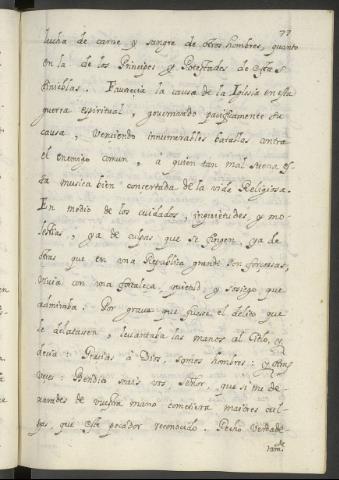 77
lucha de carne y sangre de otros hombres, quanto
en la de los Principes y Potestades de estas
tinieblas. Favorecia la causa de la Iglesia en esta
guerra espiritual, governando pacificamente su
causa, venciendo innumerables batallas contra
el enemigo comun, a quien tan mal suena es-
ta musica bien concertada de la vida Religiosa.
En medio de los cuidados, inquietudes, y mo-
lestias, ya de culpas que se fingen, ya de
otras que en una Republica grande son forzosas,
vivia con una fortaleza, quietud y sosiego que
admiraba. Por grave que fuesse el delito que
le delatassen, levantaba las manos al Cielo, y
decia: Gracias a Dios, somos hombres: y otras
veces: Bendito seais vos Señor, que si me de-
xarades de vuestra mano cometiera maiores cul-
pas, que este pecador reconocido. Pecho verdade-
ram.te